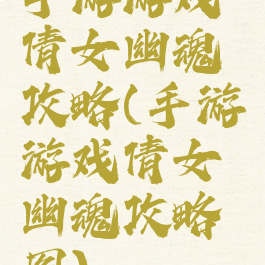 手游游戏
倩女幽魂
攻略(手游
游戏倩女
幽魂攻略
图)